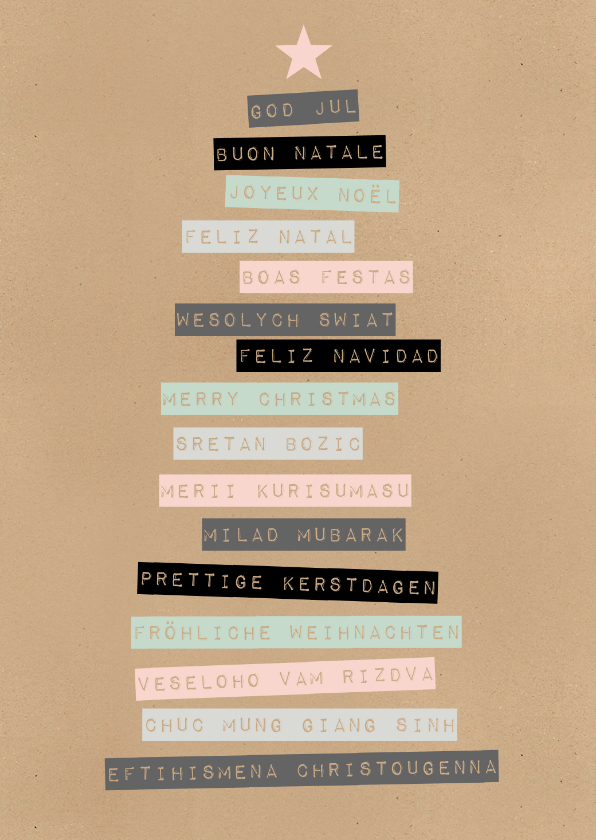 GOD JUL
BUON NATALE
JOYEUX NOËL
FELIZ NATAL
BOAS FESTAS
WESOLYCH SWIAT
FELIZ NAVIDAD
MERRY CHRISTMAS
SRETAN BOZIC
MERII KURISUMASU
MILAD MUBARAK
PRETTIGE KERSTDAGEN
FRÖHLICHE WEIHNACHTEN
VESELOHO VAM RIZDVA
CHUC MUNG GIANG SINH
EFTIHISMENA CHRISTOUGENNA